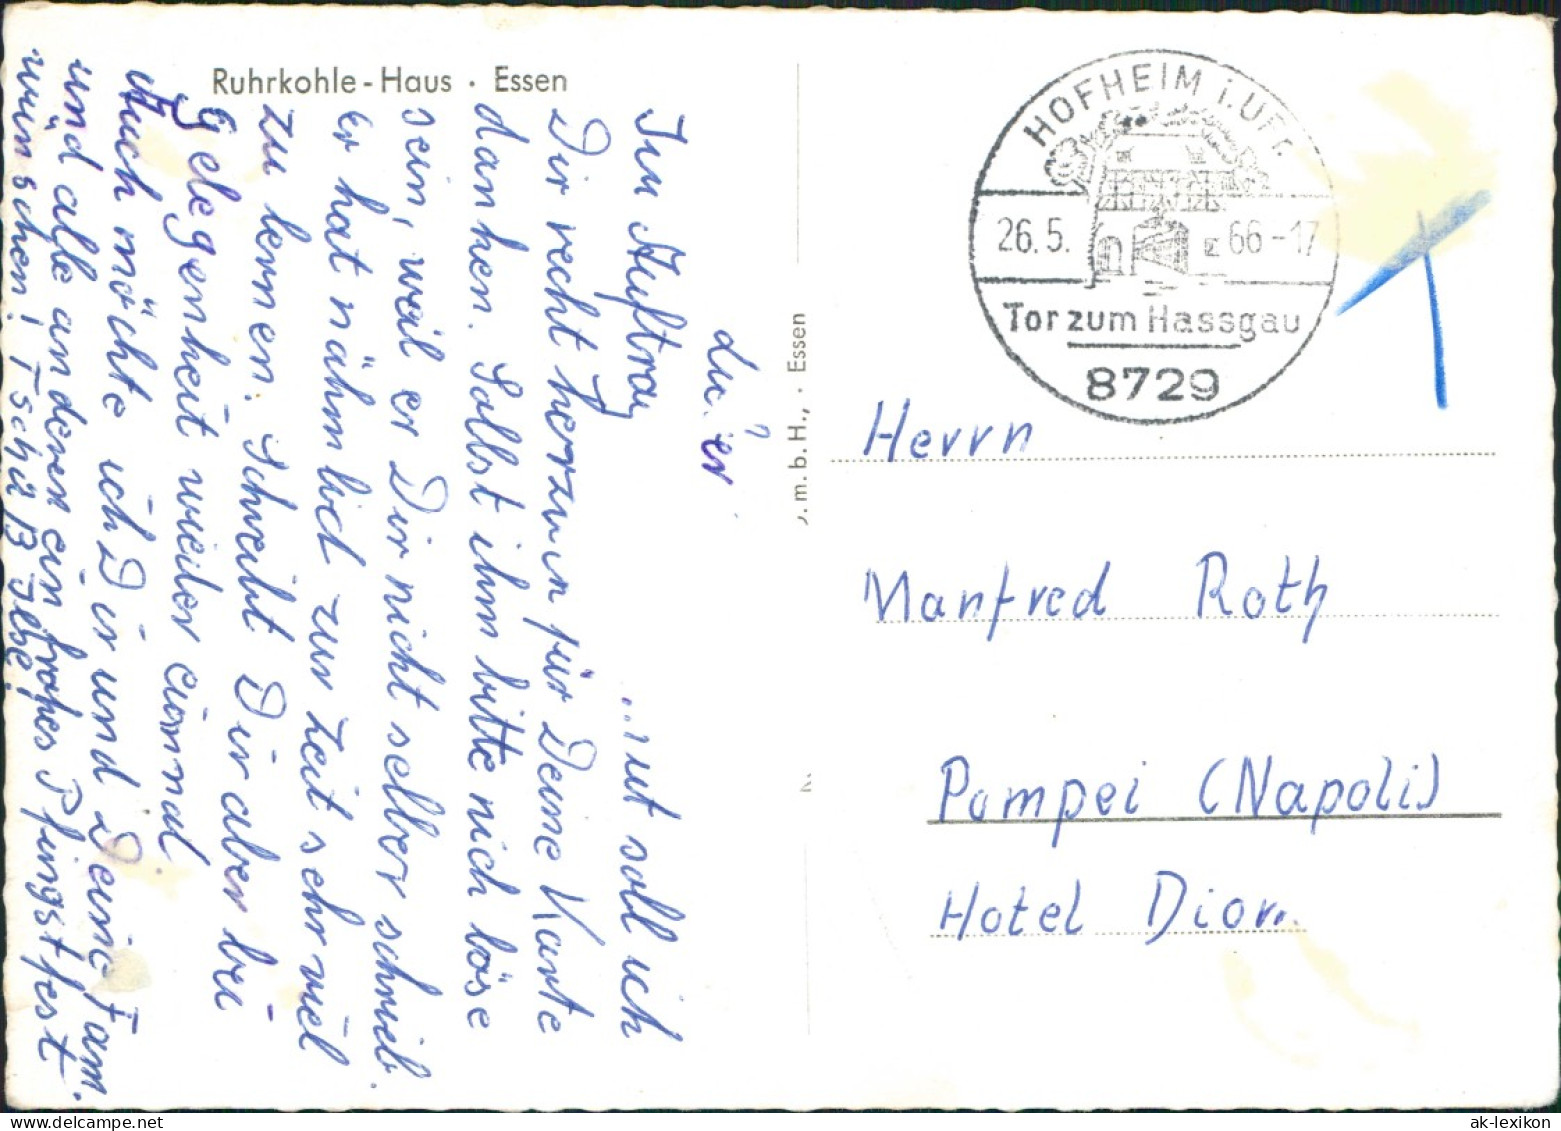 Ruhrkohle-Haus · Essen
Im Auftrag
soll ich
Dir recht herzum für Deine Karte
danken. Solbst ihm bitte nich böse
sein, weil er Dir nicht selber schreib.
er hat nähmlich zur zeit sehr viel
zu lernen. Schreibt Dir aber bei
Gelegenheit wieder einmal
Auch möchte ich Dir und Deine Fam.
und alle anderen ein frohes Pfingstfest
wünschen! Tschüß
.m.b.H., · Essen
HOFHEIM i.UFr.
26.5. 66-17
Tor zum Hassgau
8729
Herrn
Manfred Roth
Pompei (Napoli)
Hotel
ak-lexikon